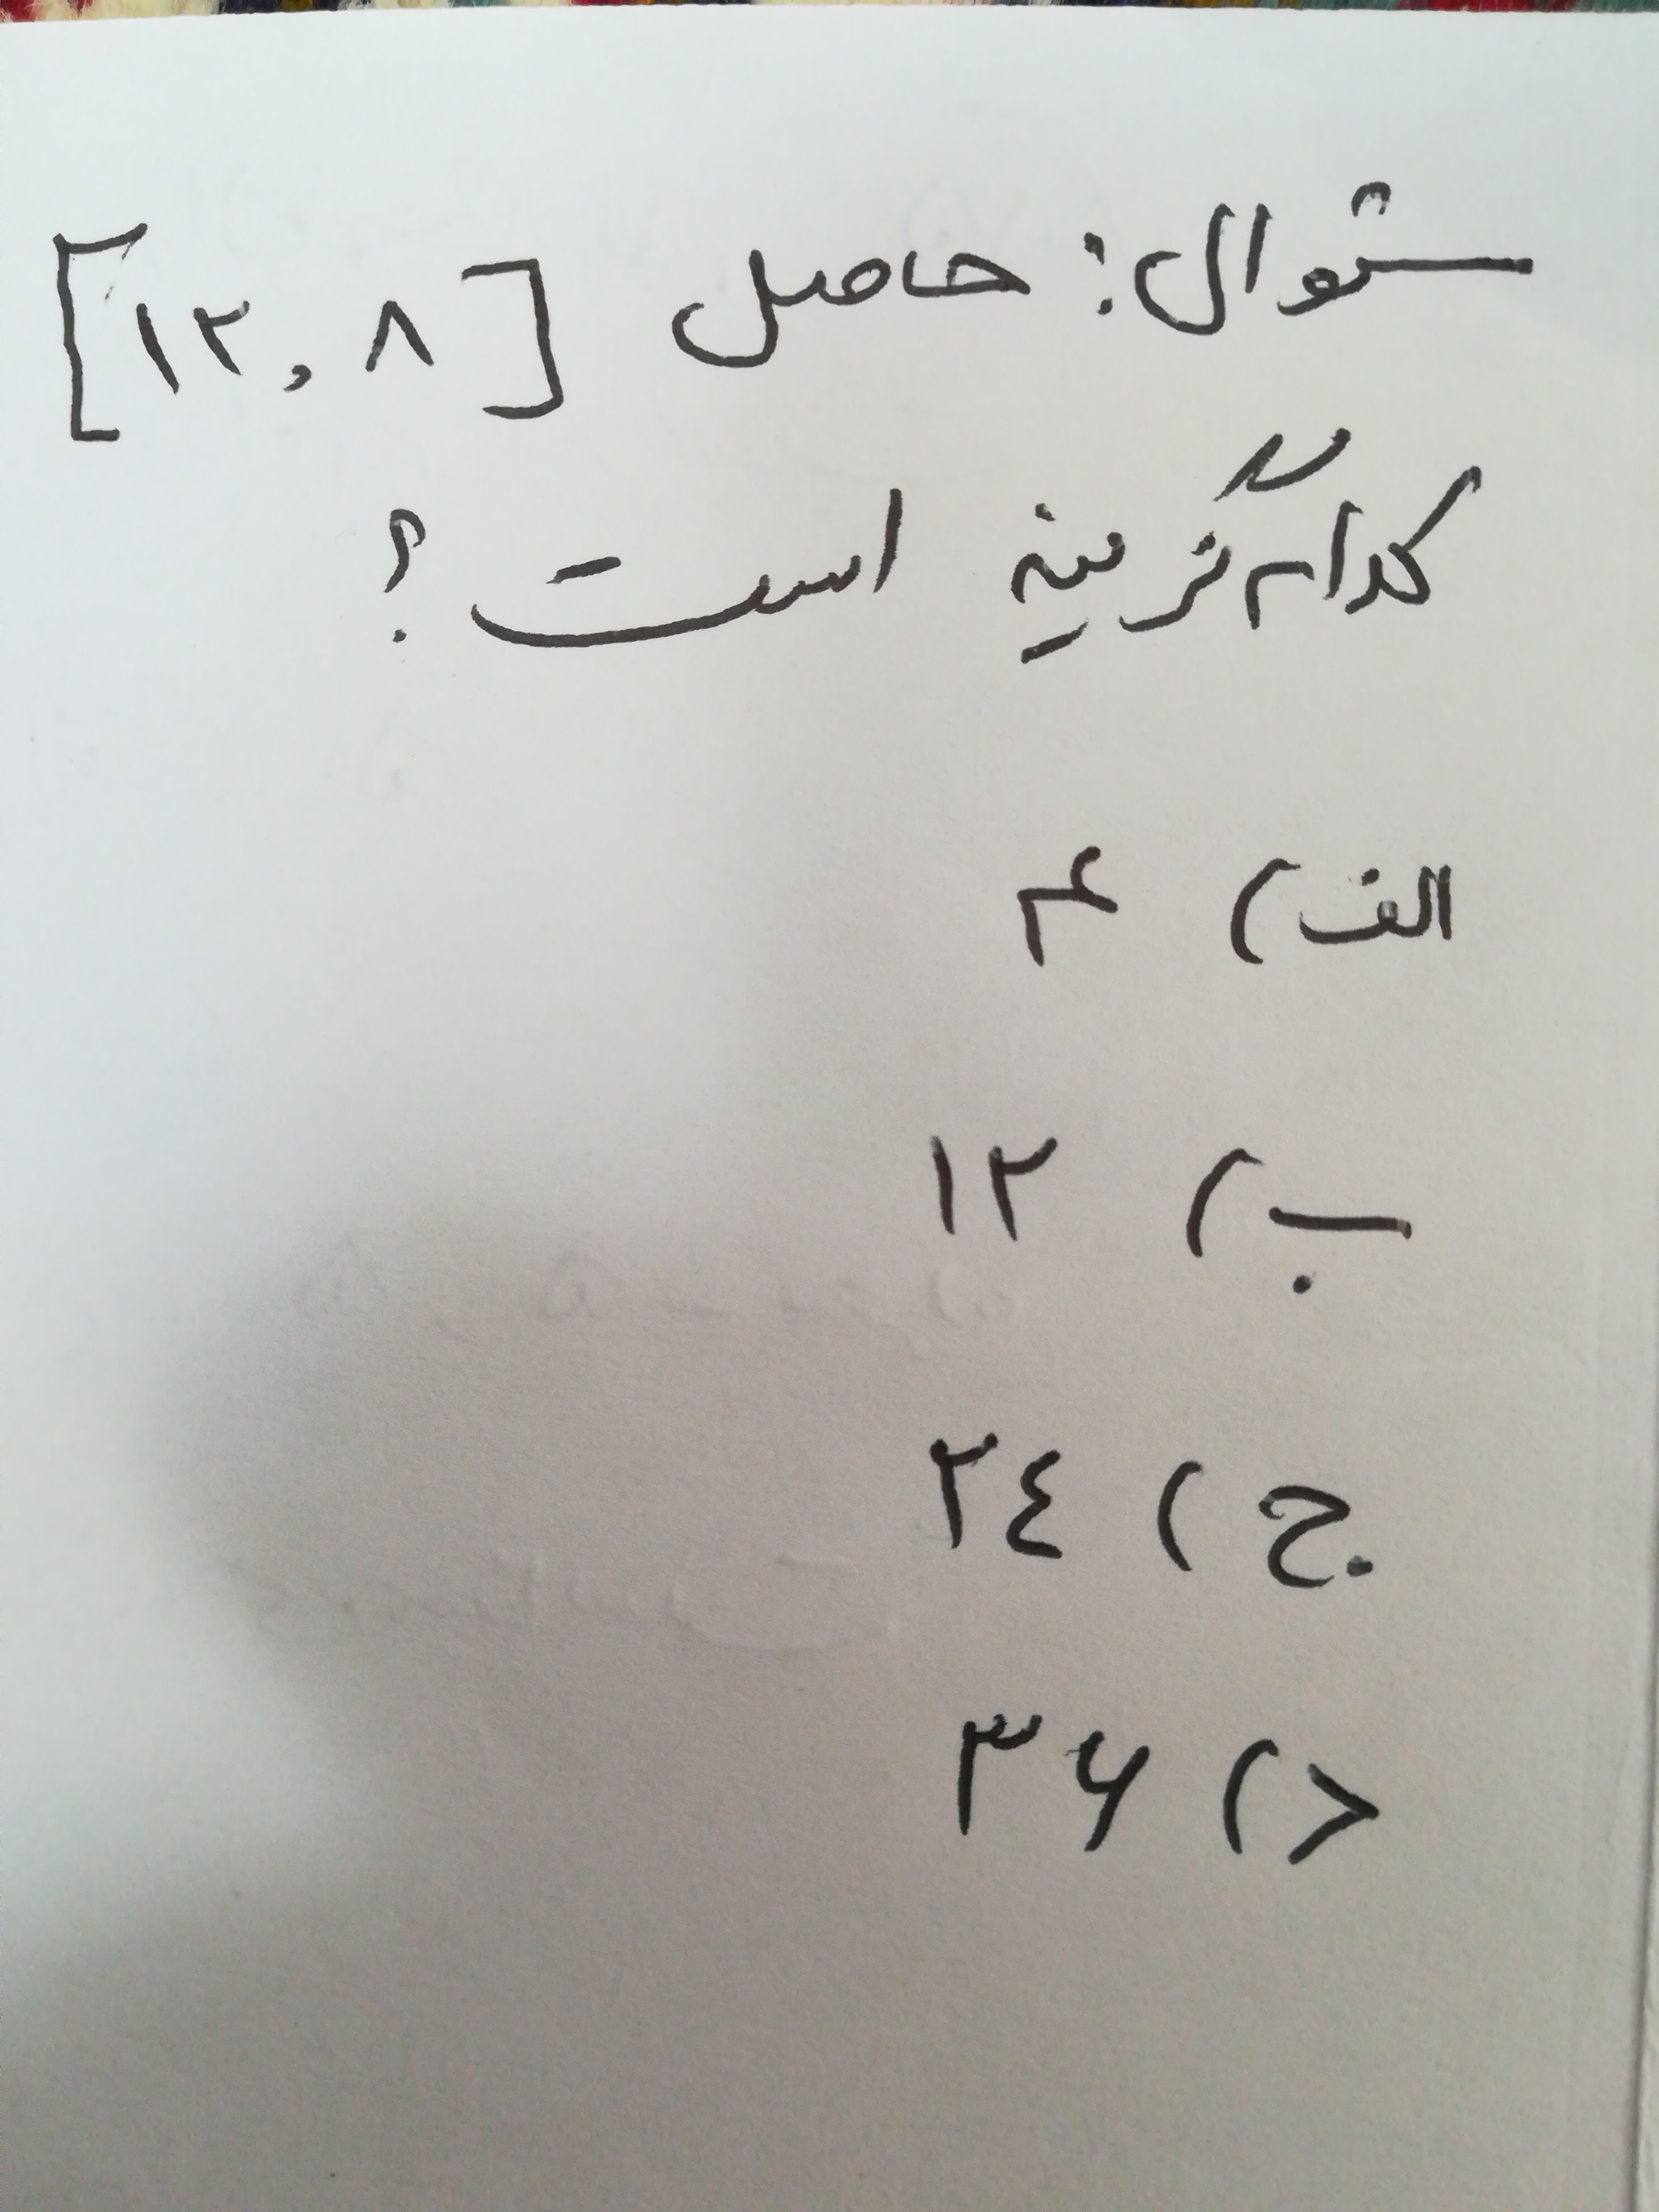 سئوال: حاصل [۱۲ , ۸]
کدام گزینه است؟
الف) ۴
ب) ۱۲
ج) ۲٤
د) ۳۶